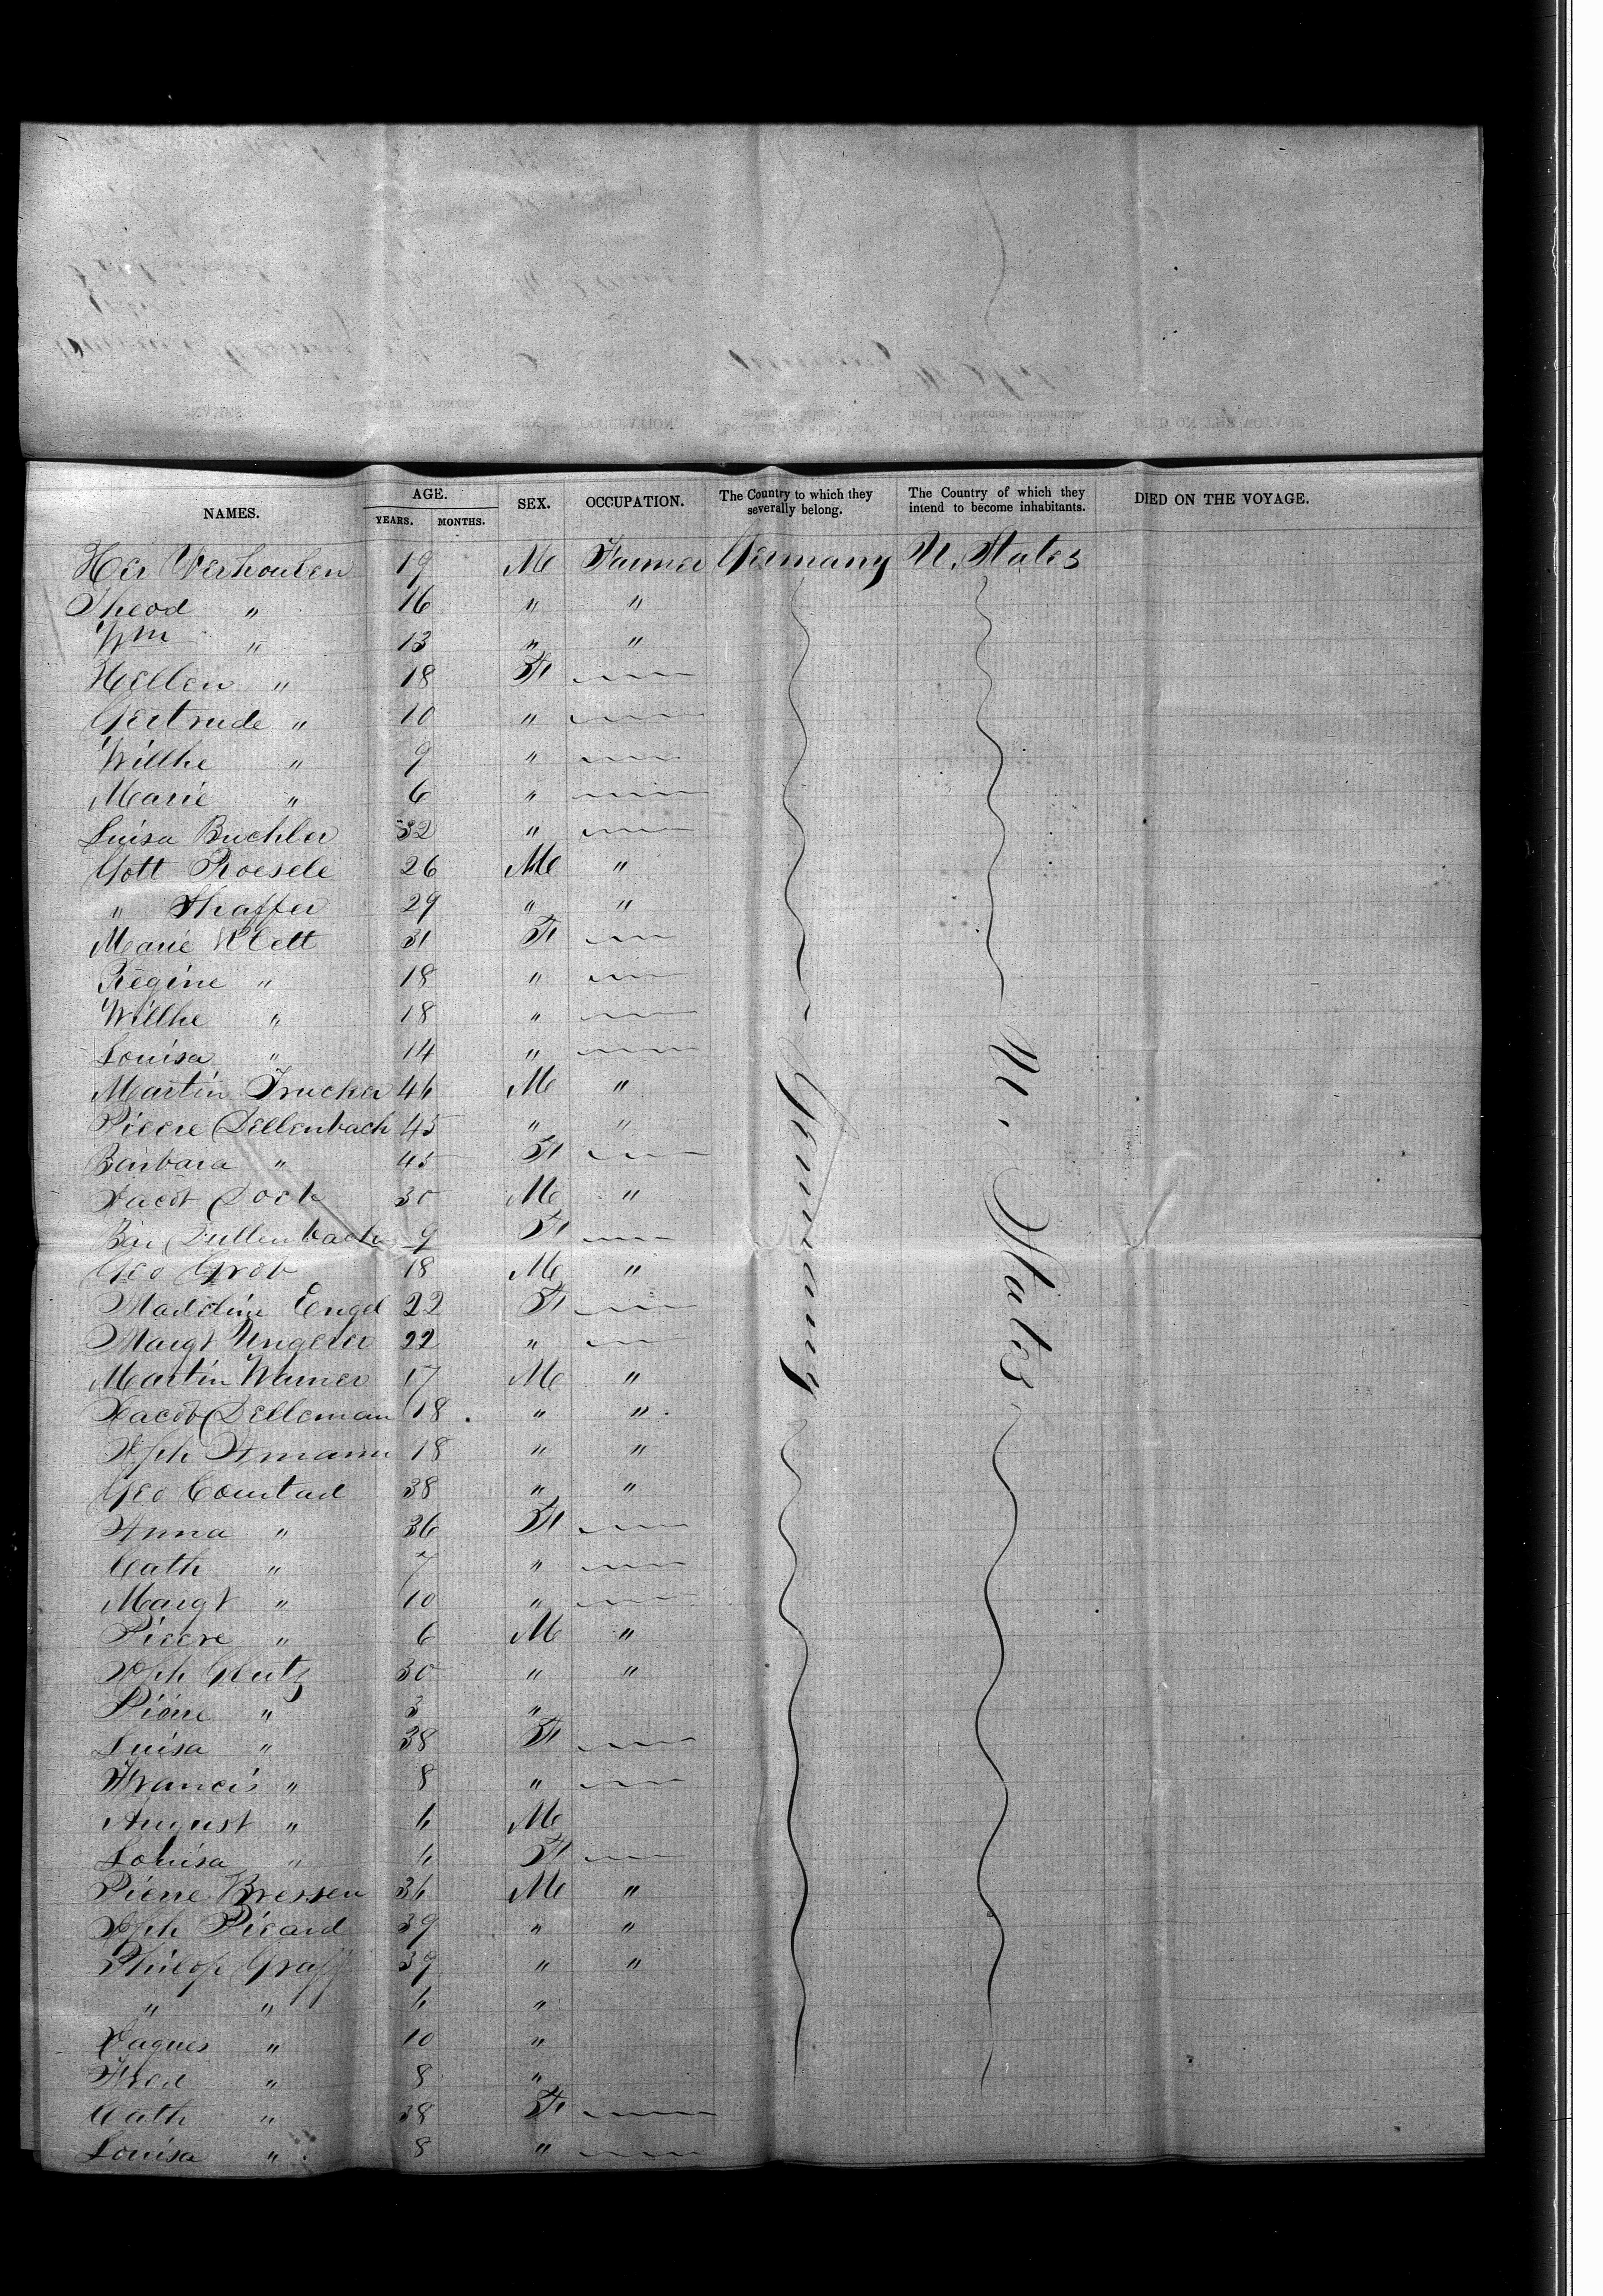 NAMES. AGE. YEARS. MONTHS. SEX. OCCUPATION. The Country to which they severally belong. The Country of which they intend to become inhabitants. DIED ON THE VOYAGE.
Her Verhouben 19 M Farmer Germany U. States
Theod " 16 " "
Wm " 13 " "
Hellen " 18 F
Gertrude " 10 "
Willhe " 9 "
Marie " 6 "
Luisa Buchler 32 "
Gott Roesele 26 M "
" Shaffer 29 " "
Marie Klett 31 F
Regine " 18 "
Willhe " 18 "
Louisa " 14 "
Martin Trucker 46 M "
Pierre Dellenbach 45 " "
Barbara " 45 F
Jacob Dock 30 M "
Bar Dullenbach 9 F
Geo Grob 18 M "
Madeline Engel 22 F
Margt Ungerer 22 "
Martin Warner 17 M "
Jacob Delleman 18 " "
Jph Amann 18 " "
Geo Courtad 38 " "
Anna " 36 F
Cath " 7 "
Margt " 10 "
Pierre " 6 M "
Jph Glutz 30 " "
Pierre " 3 "
Luisa " 38 F
Francis " 8 "
August " 6 M
Louisa " 6 F
Pierre Bressen 36 M "
Jph Picard 39 " "
Philop Graff 39 " "
" " 6 "
Jaques " 10 "
Fred " 8 "
Cath " 38 F
Louisa " 8 "
Germany
U. States